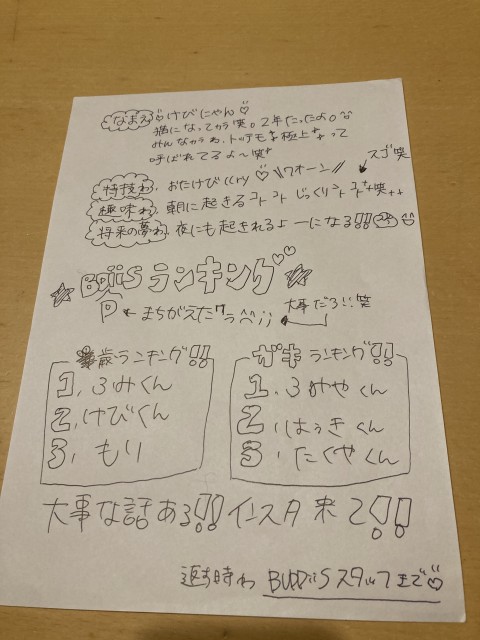 なまえ♡けびにゃん♡
猫になってから笑。2年たったよ。
みんなからわ、トッテモ極上ナって
呼ばれてるよ〜笑
スゴ笑
特技わ、おたけび(ry ♡\\ワオーン//
趣味わ、朝に起きるコトコトじっくりコトコト笑++
将来の夢わ、夜にも起きれるよーになる!!
☆BUDiiSランキング♡♡☆
P←まちがえたワラ^^;; 大事だろ!!笑
歳ランキング!!
1、ふみくん
2、けびくん
3、もり
ガキランキング!!
1、ふみやくん
2、はるきくん
3、たくやくん
大事な話ある!!インスタ来て!!
返す時わ BUDDiiSスタッフまで♡